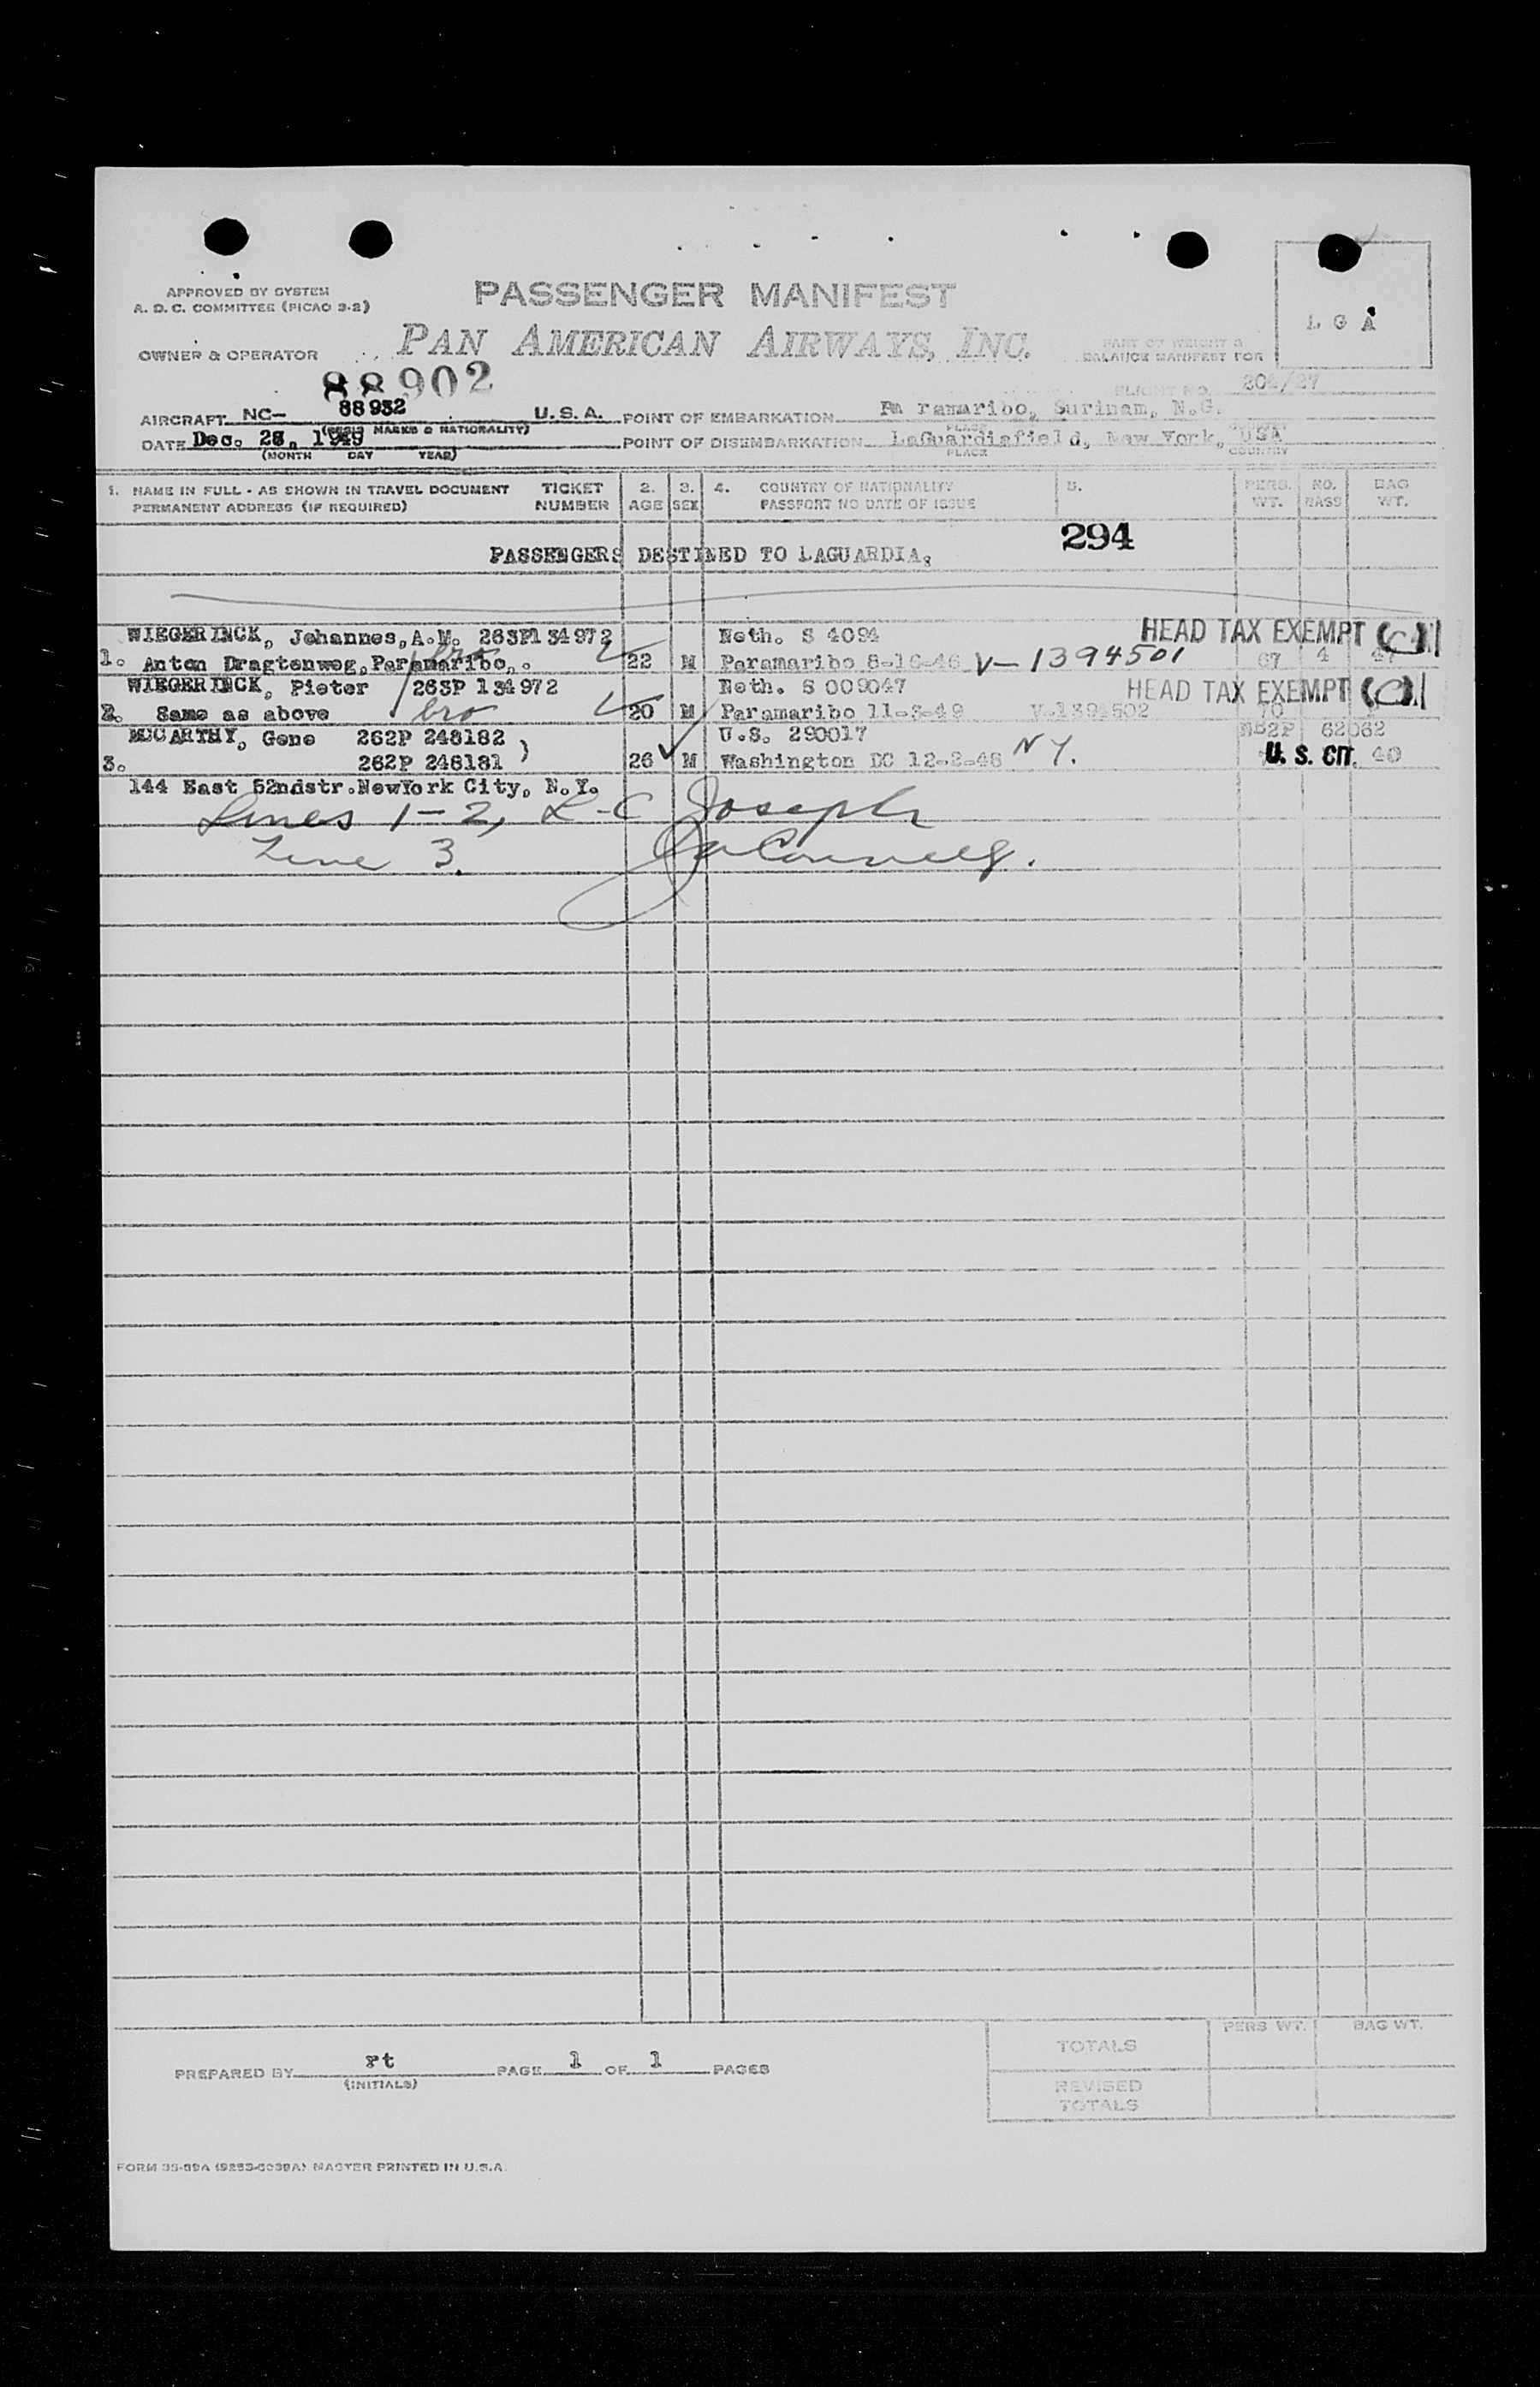 APPROVED BY SYSTEM
A. D. C. COMMITTEE (PICAO 3-2)
PASSENGER MANIFEST
L G A
OWNER & OPERATOR
PAN AMERICAN AIRWAYS, INC.
PART OF WEIGHT &
BALANCE MANIFEST FOR
88902
FLIGHT NO.
AIRCRAFT NC- 88932 U.S.A. POINT OF EMBARKATION Pa ramaribo, Surinam, N.G.
(REGIS MARKS & NATIONALITY) PLACE
DATE Dec. 28, 1949 POINT OF DISEMBARKATION LaGuardiafield, New York, USA
(MONTH DAY YEAR) PLACE COUNTRY
1. NAME IN FULL - AS SHOWN IN TRAVEL DOCUMENT TICKET 2. 3. 4. COUNTRY OF NATIONALITY 5. PERS. NO. BAG
PERMANENT ADDRESS (IF REQUIRED) NUMBER AGE SEX PASSPORT NO DATE OF ISSUE WT. BAGS WT.
294
PASSENGERS DESTINED TO LAGUARDIA,
WIEGERINCK, Johannes, A.M. 263P134972 Neth. S 4094 HEAD TAX EXEMPT
1. Anton Dragtenweg, Paramaribo,. bro 22 M Paramaribo 8-16-46 V-1394501 67 4 47
WIEGERINCK, Pieter 263P 134972 Neth. S 009047 HEAD TAX EXEMPT
2. Same as above bro 20 M Paramaribo 11-3-49 V-1394502 70
MCCARTHY, Gene 262P 248182 U.S. 290017 62062
3. 262P 248181 ) 26 M Washington DC 12-2-48 NY. U. S. CIT. 40
144 East 52ndstr.NewYork City, N.Y.
Lines 1-2, L-C Joseph
Line 3.
TOTALS PERS WT. BAG WT.
PREPARED BY rt PAGE 1 OF 1 PAGES
(INITIALS)
REVISED
TOTALS
MASTER PRINTED IN U.S.A.